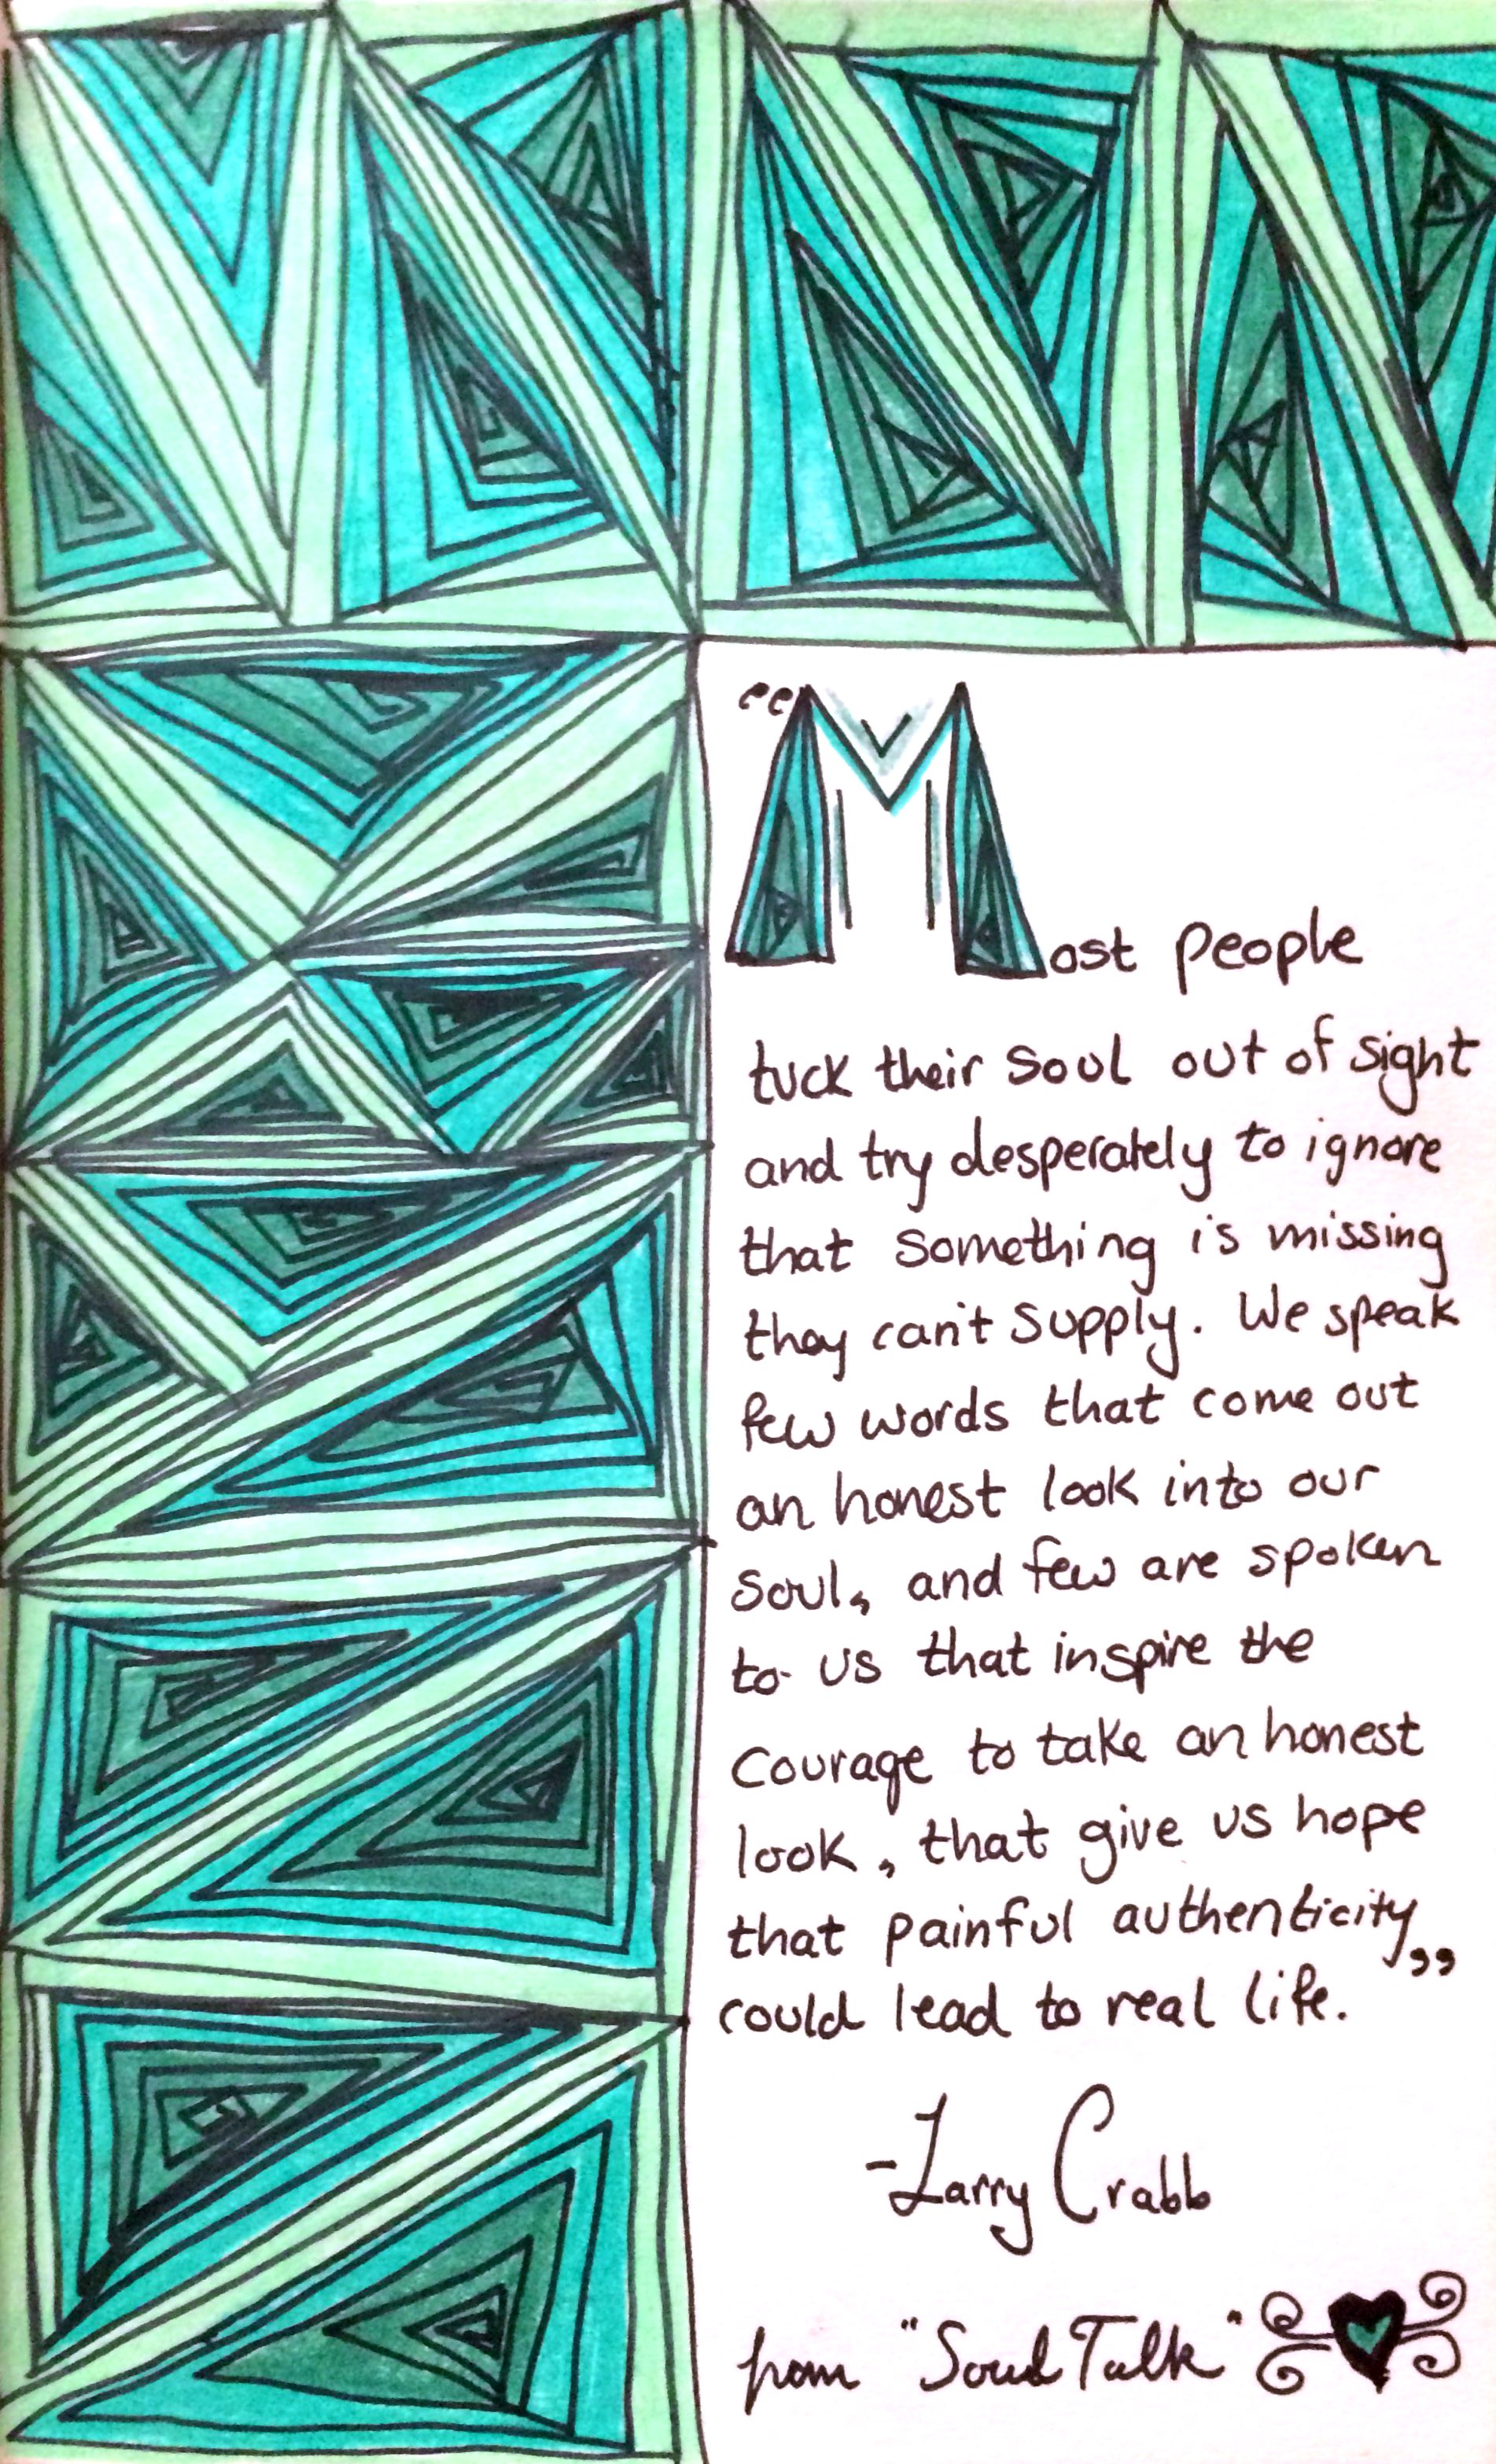 “Most people
tuck their soul out of sight
and try desperately to ignore
that something is missing
they can't supply. We speak
few words that come out
an honest look into our
soul, and few are spoken
to us that inspire the
courage to take an honest
look, that give us hope
that painful authenticity
could lead to real life.”
-Larry Crabb
from "Soul Talk"